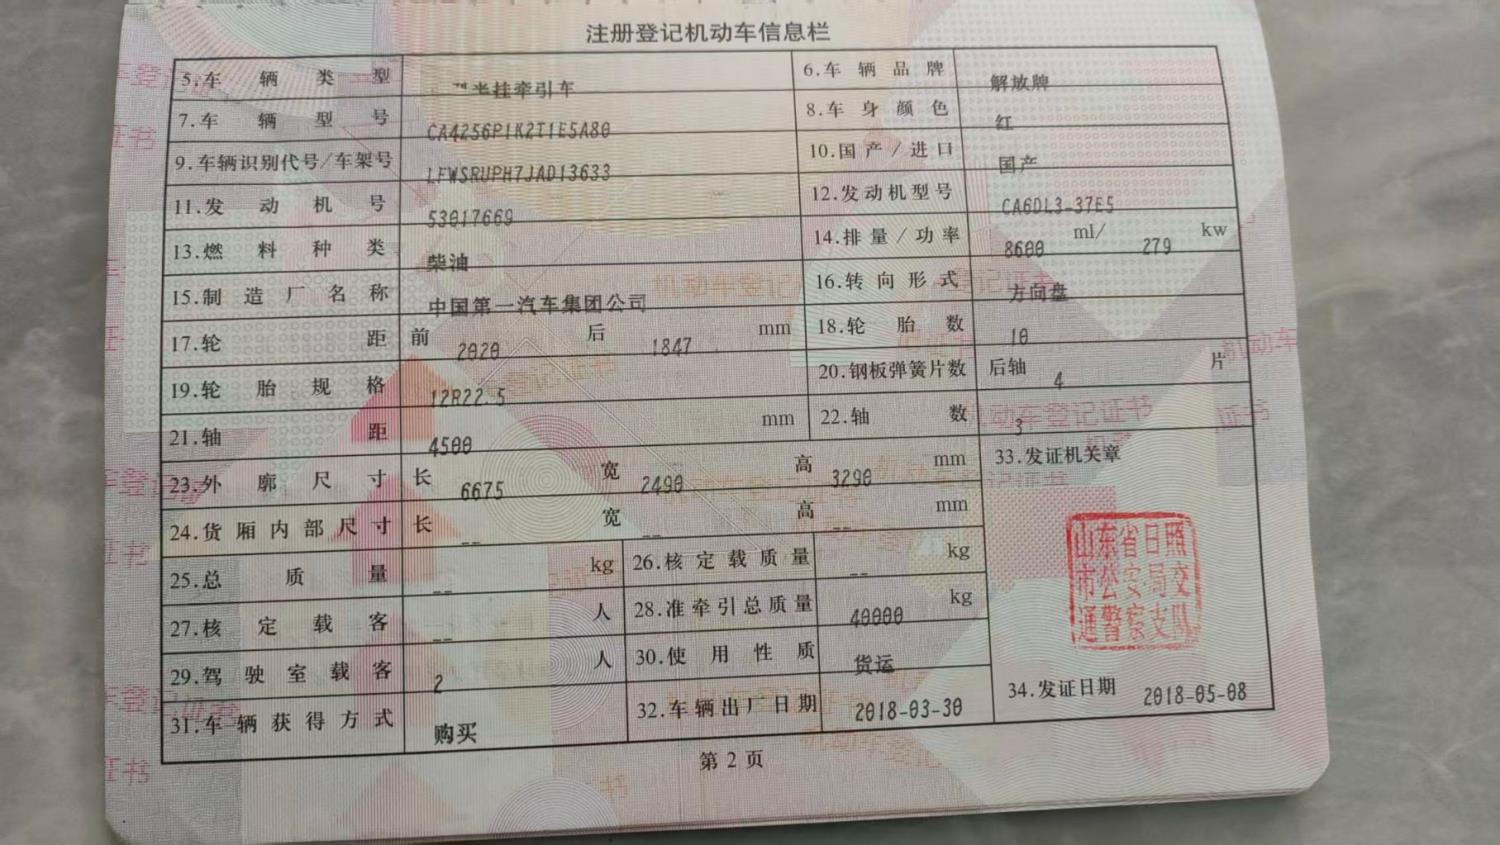 注册登记机动车信息栏
5.车辆类型 半挂牵引车 6.车辆品牌 解放牌
7.车辆型号 CA4256P1K2T1E5A80 8.车身颜色 红
9.车辆识别代号/车架号 LFWSRUPH7JAD13633 10.国产/进口 国产
11.发动机号 53017669 12.发动机型号 CA6DL3-37E5
13.燃料种类 柴油 14.排量/功率 8600 ml/ 279 kw
15.制造厂名称 中国第一汽车集团公司 16.转向形式 方向盘
17.轮距 前 2020 后 1847 mm 18.轮胎数 10
19.轮胎规格 12R22.5 20.钢板弹簧片数 后轴 4 片
21.轴距 4500 mm 22.轴数 3
23.外廓尺寸 长 6675 宽 2490 高 3290 mm 33.发证机关章
24.货厢内部尺寸 长 -- 宽 -- 高 -- mm
25.总质量 -- kg 26.核定载质量 -- kg
27.核定载客 -- 人 28.准牵引总质量 40000 kg
29.驾驶室载客 2 人 30.使用性质 货运
31.车辆获得方式 购买 32.车辆出厂日期 2018-03-30 34.发证日期 2018-05-08
山东省日照
市公安局交
通警察支队
第 2 页